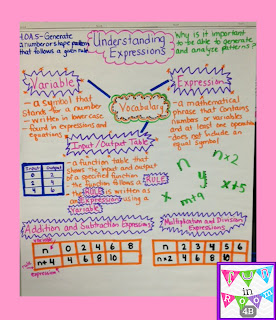 4.OA.5 - Generate
a number or shape pattern
that follows a given rule.
Understanding
Expressions
Why is it important
to be able to generate
and analyze patterns?
Variable
- a symbol that
stands for a number
- written in lowercase
- found in expressions and
equations
Vocabulary
Expression
- a mathematical
phrase that contains
numbers or variables
and at least one operation
- does not include an
equal symbol
Input/Output Table
Input Output
- a function table that
shows the input and output
of a specified function.
- the function follows a RULE
- the RULE is written as
an Expression using a
Variable
n
n×2
y
x
m+9
x+5
Addition and Subtraction Expressions
variable
n 0 2 4 6 8
n+4 4 6 8 10
expression
Multiplication and Division
Expressions
n 2 3 4 5 6
n×2 4 6 8 10
in
ROOM
4B